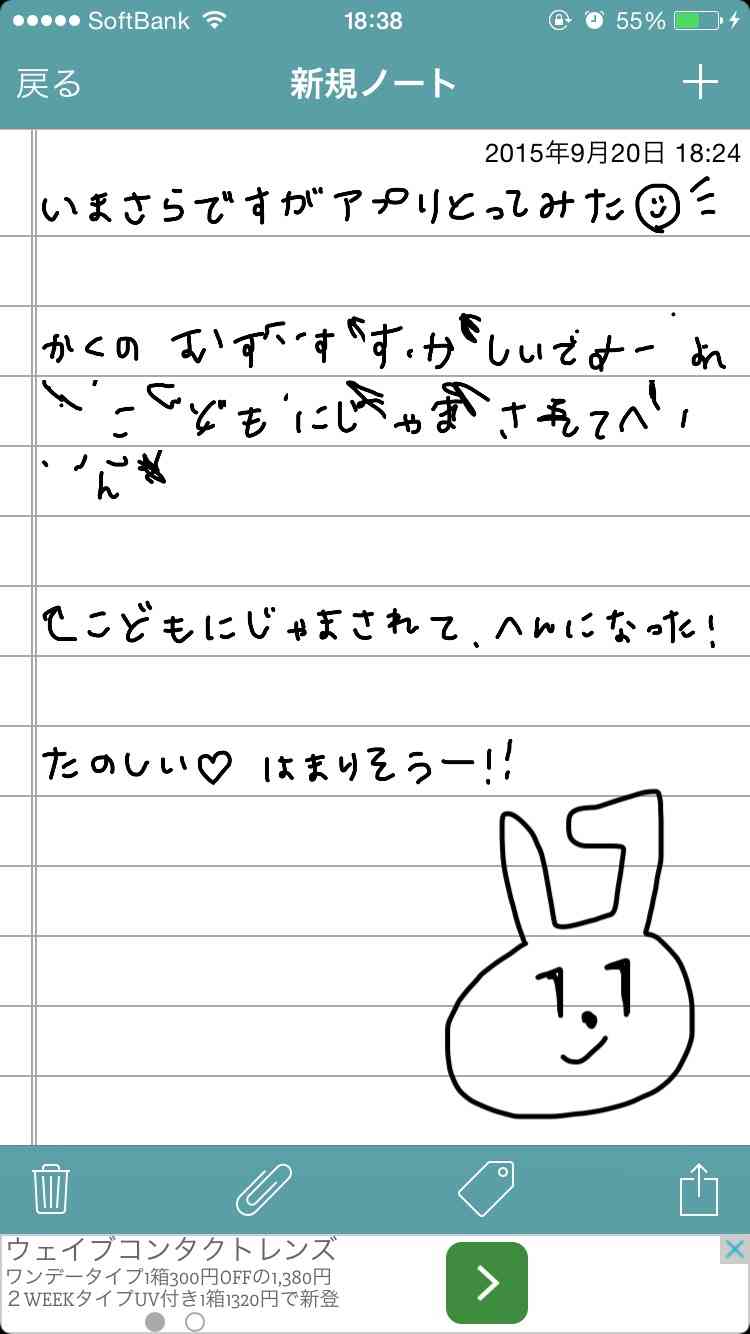 SoftBank 18:38 55%
戻る 新規ノート
2015年9月20日 18:24
いまさらですがアプリとってみた
かくの むず すしいですよー あれ
こどもにじゃまさ れてへ
ん
こどもにじゃまされて、へんになった!
たのしい♡ はまりそうー!!
ウェイブコンタクトレンズ
ワンデータイプ1箱300円OFFの1,380円
2WEEKタイプUV付き1箱1320円で新登